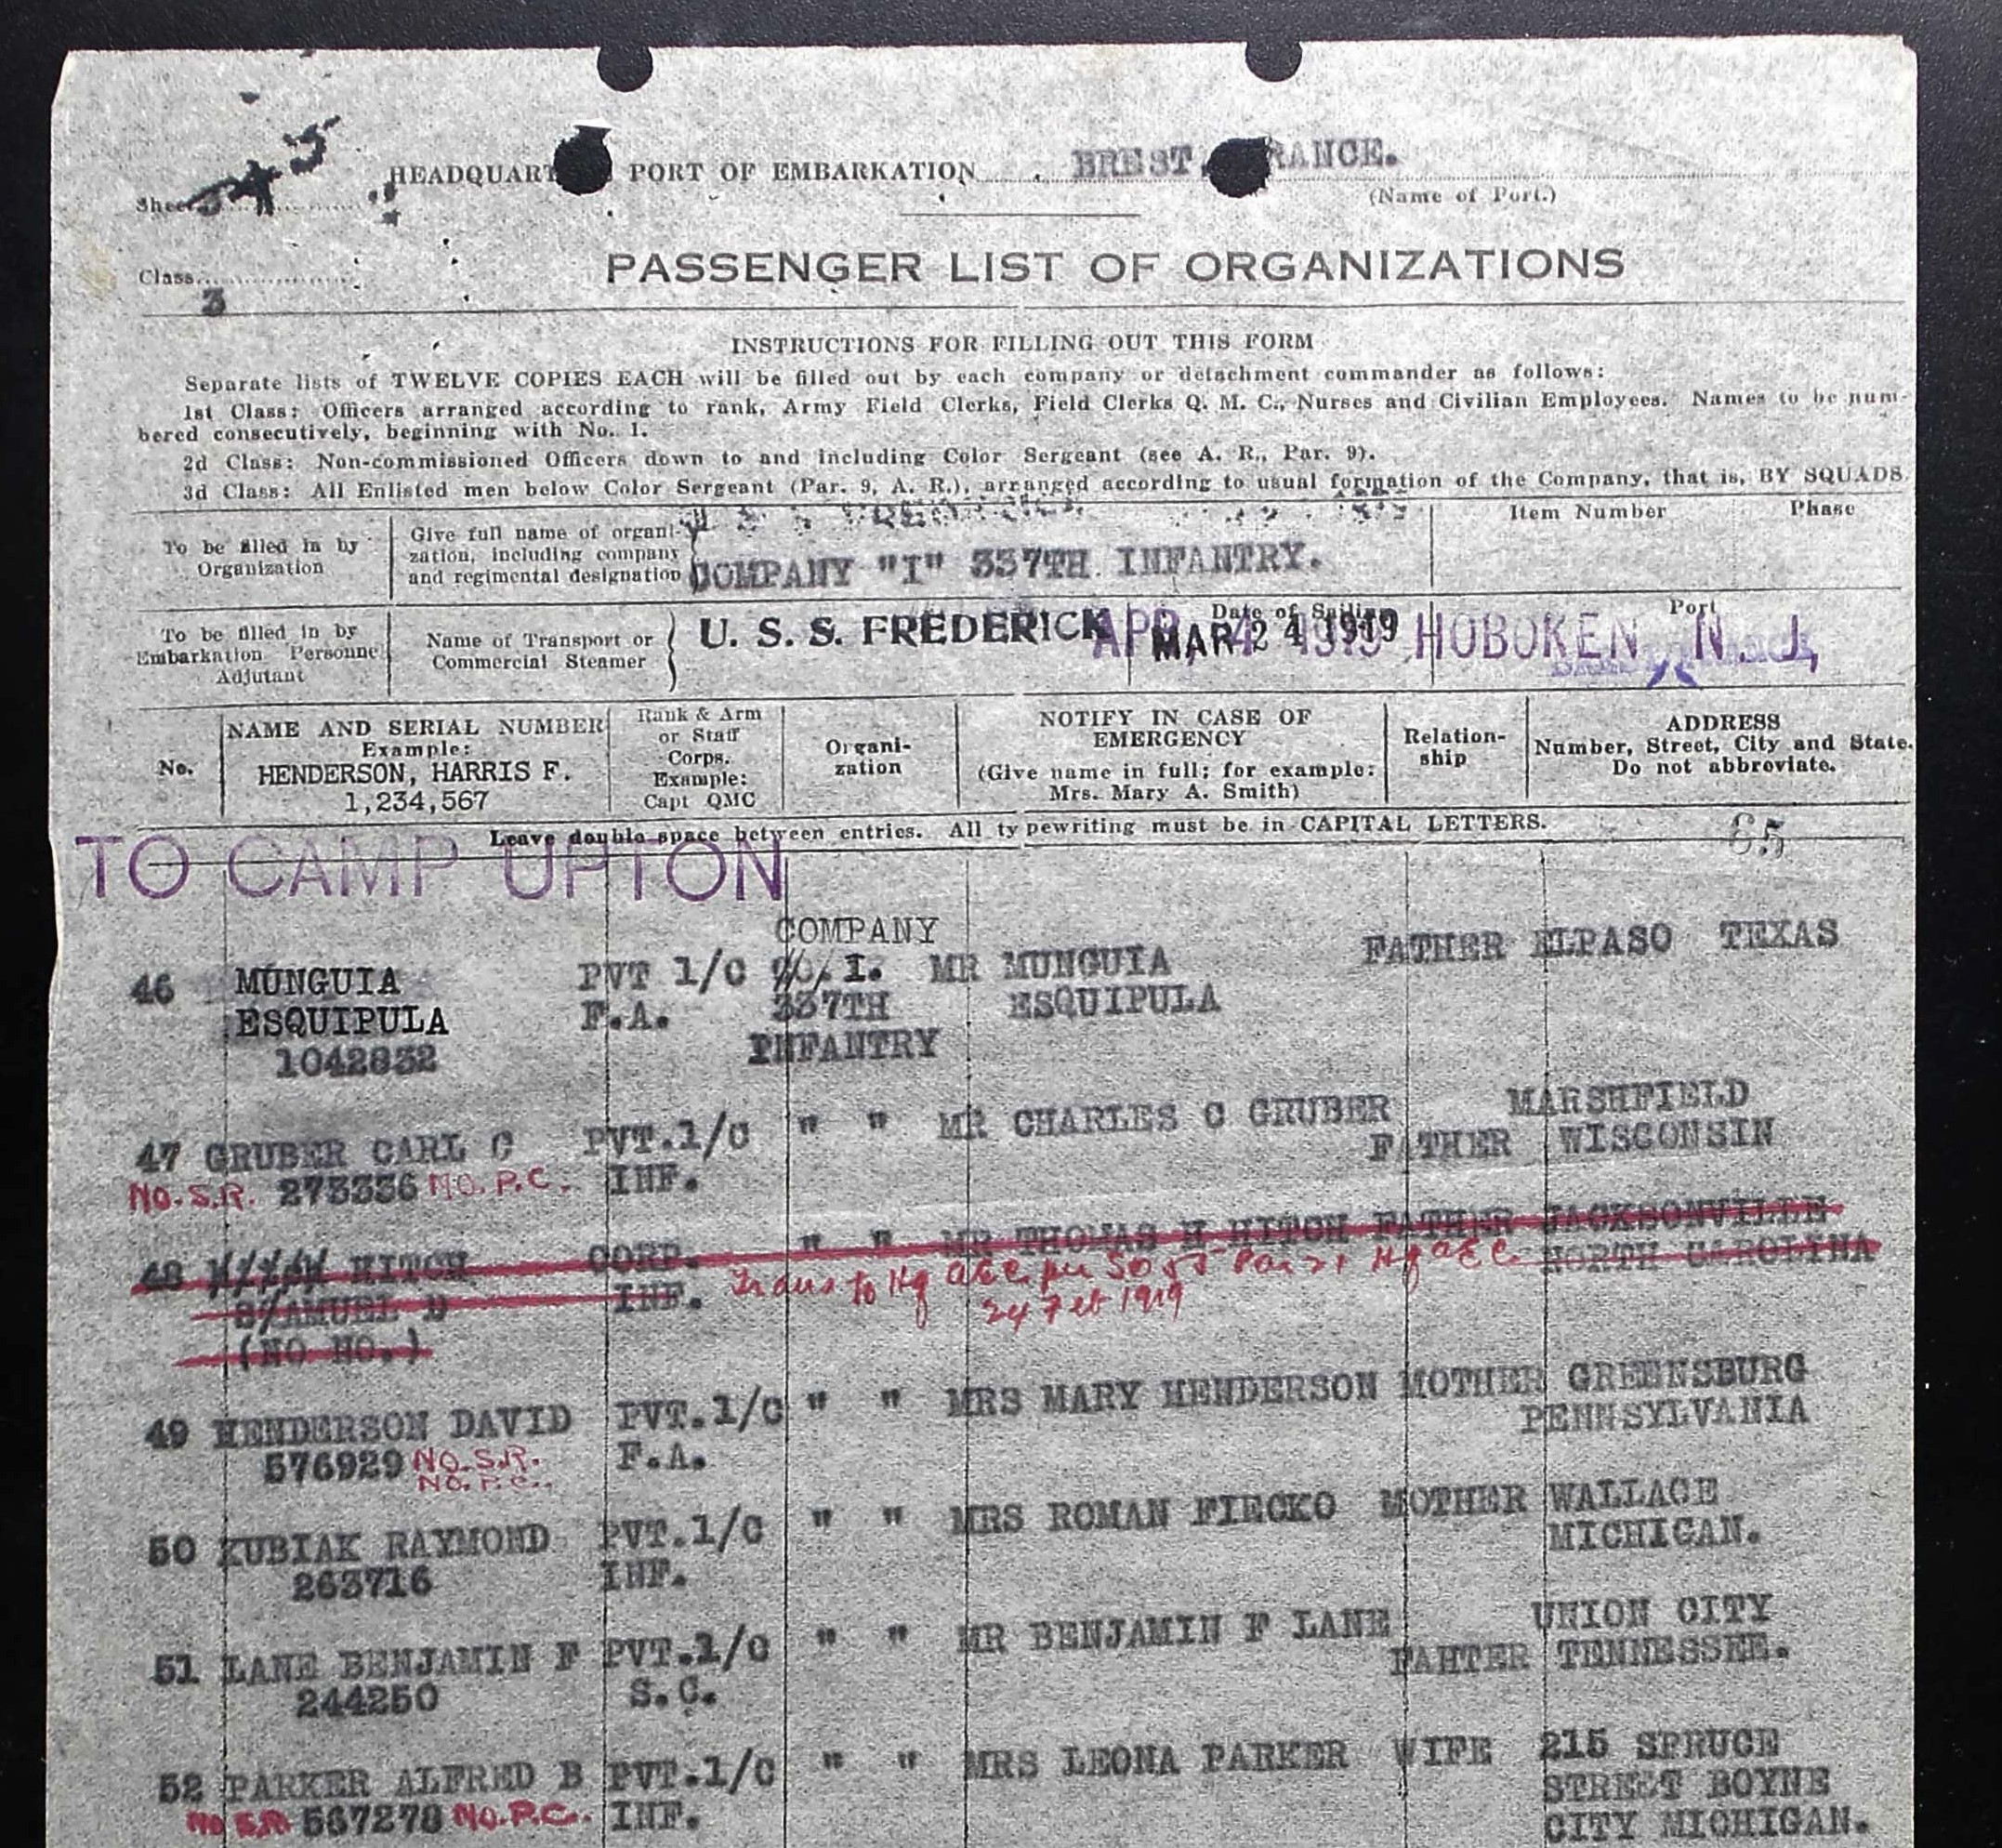 HEADQUART PORT OF EMBARKATION BREST RANCE.
Sheet
(Name of Port.)
Class
3
PASSENGER LIST OF ORGANIZATIONS
INSTRUCTIONS FOR FILLING OUT THIS FORM
Separate lists of TWELVE COPIES EACH will be filled out by each company or detachment commander as follows:
1st Class: Officers arranged according to rank, Army Field Clerks, Field Clerks Q. M. C., Nurses and Civilian Employees. Names to be num-
bered consecutively, beginning with No. 1.
2d Class: Non-commissioned Officers down to and including Color Sergeant (see A. R., Par. 9).
3d Class: All Enlisted men below Color Sergeant (Par. 9, A. R.), arranged according to usual formation of the Company, that is, BY SQUADS.
To be filled in by
Organization
Give full name of organi-
zation, including company
and regimental designation
COMPANY "I" 337TH INFANTRY.
Item Number
Phase
To be filled in by
Embarkation Personne
Adjutant
Name of Transport or
Commercial Steamer
U. S. S. FREDERICK
Date of Sailing
MAR 24 1919
APR 4 1919
Port
HOBOKEN, N. J.
No.
NAME AND SERIAL NUMBER
Example:
HENDERSON, HARRIS F.
1,234,567
Rank & Arm
or Staff
Corps.
Example:
Capt QMC
Organi-
zation
NOTIFY IN CASE OF
EMERGENCY
(Give name in full; for example:
Mrs. Mary A. Smith)
Relation-
ship
ADDRESS
Number, Street, City and State.
Do not abbreviate.
Leave double space between entries. All typewriting must be in CAPITAL LETTERS.
65
TO CAMP UPTON
COMPANY
46 MUNGUIA PVT 1/C I. MR MUNGUIA FATHER ELPASO TEXAS
ESQUIPULA F.A. 337TH ESQUIPULA
1042832 INFANTRY
47 GRUBER CARL C PVT.1/C " " MR CHARLES C GRUBER FATHER MARSHFIELD
NO.S.R. 273336 NO.P.C. INF. WISCONSIN
48 HITCH CORP. " " MR THOMAS H HITCH FATHER JACKSONVILLE
SAMUEL D INF. NORTH CAROLINA
Trans to Hq a&c per SO 55 Par 21 Hq a&c
24 Feb 1919
(NO NO.)
49 HENDERSON DAVID PVT.1/C " " MRS MARY HENDERSON MOTHER GREENSBURG
576929 NO.S.R. F.A. PENNSYLVANIA
NO.P.C.
50 KUBIAK RAYMOND PVT.1/C " " MRS ROMAN FIECKO MOTHER WALLACE
263716 INF. MICHIGAN.
51 LANE BENJAMIN F PVT.1/C " " MR BENJAMIN F LANE FAHTER UNION CITY
244250 S.C. TENNESSEE.
52 PARKER ALFRED B PVT.1/C " " MRS LEONA PARKER WIFE 215 SPRUCE
NO S.R. 567278 NO.P.C. INF. STREET BOYNE
CITY MICHIGAN.